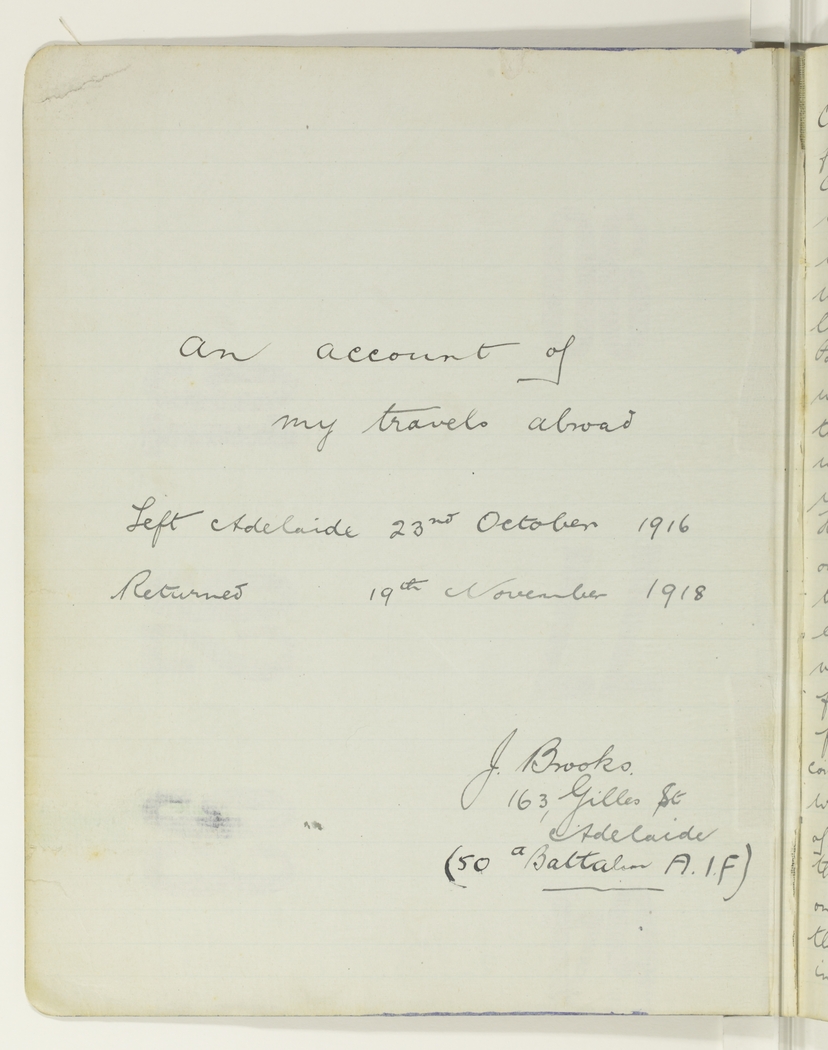 An account of
my travels abroad
Left Adelaide 23nd October 1916
Returned 19th November 1918
J. Brooks.
163, Gilles St
Adelaide
(50 a Battalion A.I.F)